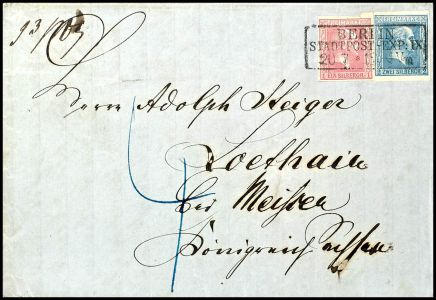 FREIMARKE
BERLIN
STADTPOST-EXP. IX
20 7
1 EIN SILBERGR. 1
2 ZWEI SILBERGR. 2
Herrn Adolph Steiger
Loethain
bei Meissen
Königreich Sachsen
4